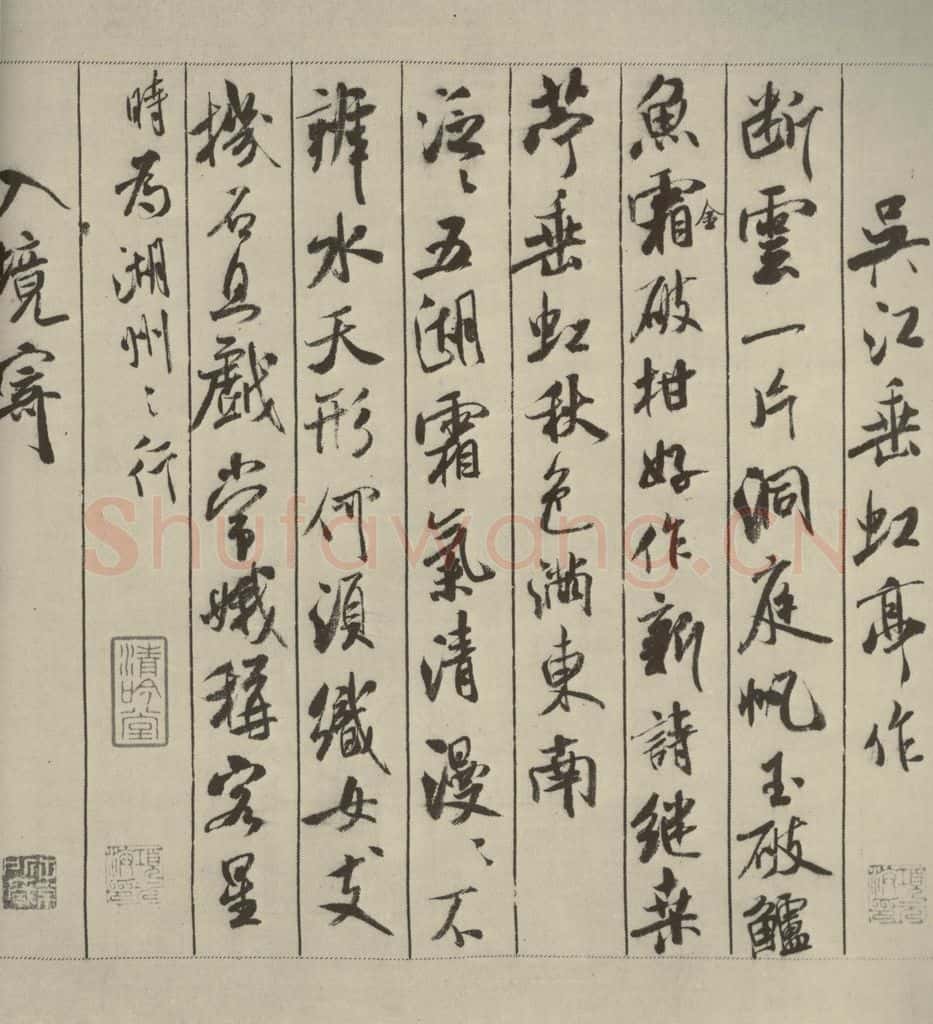 吳江垂虹亭作
断雲一片洞庭帆玉破鱸
魚霜破柑好作新詩継桑
金
苧垂虹秋色滿東南
泛〻五湖霜氣清漫〻不
辨水天形何須織女支
機石且戲常娥稱客星
時為湖州〻行
入境寄
清吟堂
Shufawang.CN